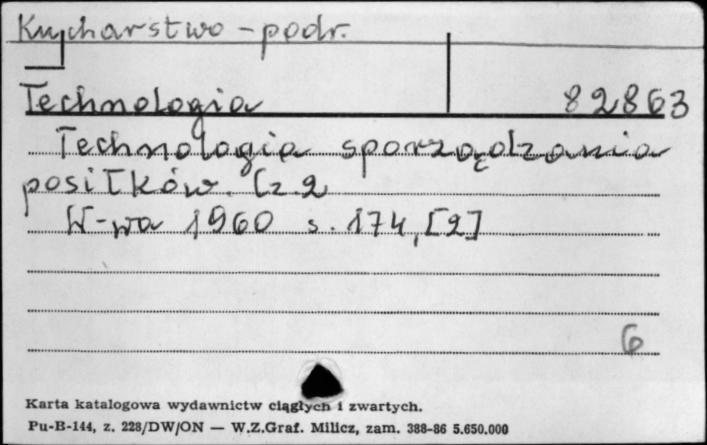 Kucharstwo - podr.
Technologia 82863
Technologia sporządzania
posiłków. Cz. 2
W-wa 1960 s. 174, [2]
6
Karta katalogowa wydawnictw ciągłych i zwartych.
Pu-B-144, z. 228/DW/ON — W.Z.Graf. Milicz, zam. 388-86 5.650.000